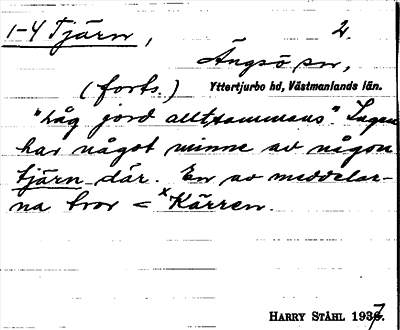 1-4 Tjärn, 2.
Ängsö sn,
(forts.) Yttertjurbo hd, Västmanlands län.
"Låg jord alltsammans". Ingen
har något minne av någon
tjärn där. En av meddelar-
na tror = ˣKärren.
HARRY STÅHL 1937.